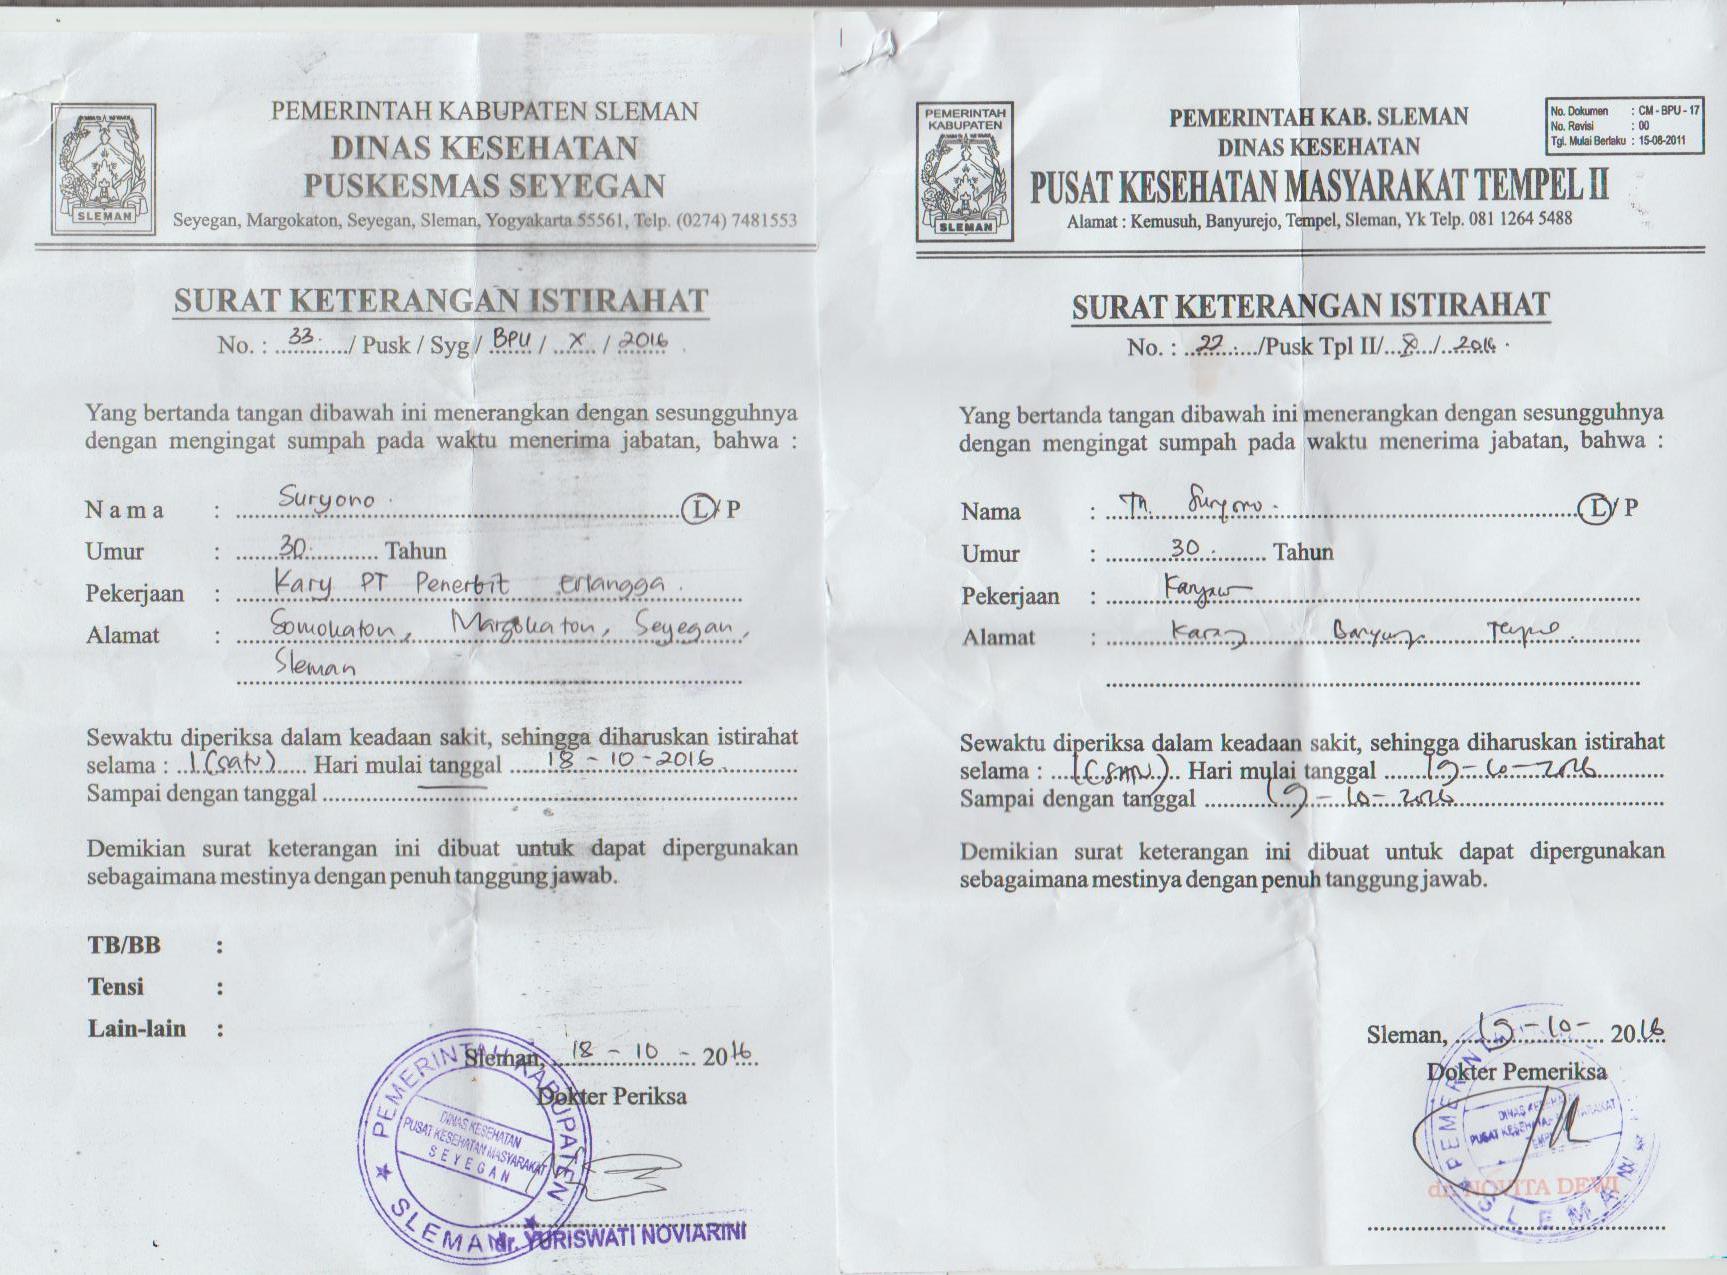 SLEMAN
PEMERINTAH KABUPATEN SLEMAN
DINAS KESEHATAN
PUSKESMAS SEYEGAN
Seyegan, Margokaton, Seyegan, Sleman, Yogyakarta 55561, Telp. (0274) 7481553
SURAT KETERANGAN ISTIRAHAT
No. : 33 / Pusk / Syg / BPU / X / 2016
Yang bertanda tangan dibawah ini menerangkan dengan sesungguhnya
dengan mengingat sumpah pada waktu menerima jabatan, bahwa :
Nama : Suryono L/P
Umur : 30 Tahun
Pekerjaan : Kary PT Penerbit Erlangga
Alamat : Somokaton, Margokaton, Seyegan,
Sleman
Sewaktu diperiksa dalam keadaan sakit, sehingga diharuskan istirahat
selama : 1 (satu) Hari mulai tanggal 18 - 10 - 2016
Sampai dengan tanggal
Demikian surat keterangan ini dibuat untuk dapat dipergunakan
sebagaimana mestinya dengan penuh tanggung jawab.
TB/BB :
Tensi :
Lain-lain :
Sleman, 18 - 10 - 2016.
Dokter Periksa
PEMERINTAH KABUPATEN
DINAS KESEHATAN
PUSAT KESEHATAN MASYARAKAT
SEYEGAN
SLEMAN
dr. YURISWATI NOVIARINI
PEMERINTAH
KABUPATEN
SLEMAN
PEMERINTAH KAB. SLEMAN
DINAS KESEHATAN
PUSAT KESEHATAN MASYARAKAT TEMPEL II
Alamat : Kemusuh, Banyurejo, Tempel, Sleman, Yk Telp. 081 1264 5488
No. Dokumen : CM - BPU - 17
No. Revisi : 00
Tgl. Mulai Berlaku : 15-08-2011
SURAT KETERANGAN ISTIRAHAT
No. : 22 /Pusk Tpl II/ / 2016
Yang bertanda tangan dibawah ini menerangkan dengan sesungguhnya
dengan mengingat sumpah pada waktu menerima jabatan, bahwa :
Nama : Th. Suryono L/P
Umur : 30 Tahun
Pekerjaan :
Alamat :
Sewaktu diperiksa dalam keadaan sakit, sehingga diharuskan istirahat
selama : Hari mulai tanggal 19-10-2016
Sampai dengan tanggal 19-10-2016
Demikian surat keterangan ini dibuat untuk dapat dipergunakan
sebagaimana mestinya dengan penuh tanggung jawab.
Sleman, 19-10- 2016
Dokter Pemeriksa
dr. NOVITA DEWI